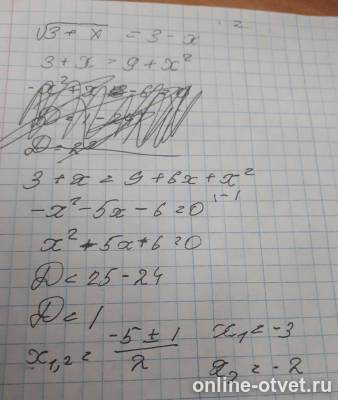 √3 + x = 3 - x
3 + x = 9 + x²
3 + x = 9 + 6x + x²
-x² - 5x - 6 = 0 | · -1
x² + 5x + 6 = 0
D = 25 - 24
D = 1
x₁,₂ = -5 ± 1 / 2 x₁ = -3
x₂ = -2
online-otvet.ru